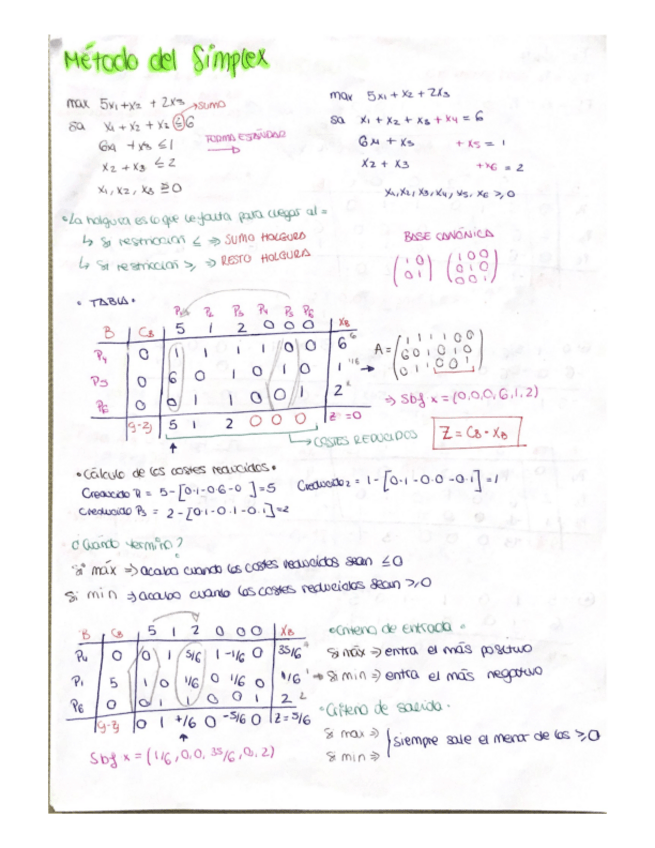 Método del Simplex
max 5x1+x2 + 2x3 →SUMO
sa x1 + x2 + x3 ≤ 6
6x1 + x3 ≤ 1
FORMA ESTÁNDAR
x2 + x3 ≤ 2
x1, x2, x3 ≥ 0
max 5x1 + x2 + 2x3
sa x1 + x2 + x3 + x4 = 6
6x1 + x3 + x5 = 1
x2 + x3 +x6 = 2
x1, x2, x3, x4, x5, x6 ≥ 0
•La holgura es lo que le falta para llegar al =
↳ Si restricción ≤ ⇒ SUMO HOLGURA
↳ Si restricción ≥ ⇒ RESTO HOLGURA
BASE CANÓNICA
1 0 1 0 0
0 1 0 1 0
0 0 1
• TABLA •
P1 P2 P3 P4 P5 P6
B CB 5 1 2 0 0 0 XB
P4 0 1 1 1 1 0 0 6 6
P5 0 6 0 1 0 1 0 1 1/6 →
P6 0 0 1 1 0 0 1 2
5 1 2 0 0 0 Z =0
A = 1 1 1 1 0 0
6 0 1 0 1 0
0 1 1 0 0 1
⇒ Sbf x = (0,0,0,6,1,2)
→COSTES REDUCIDOS
Z = CB · XB
• Cálculo de los costes reducidos •
Creducido P1 = 5-[0·1-0·6-0 ]=5
Creducido2 = 1-[0·1-0·0-0·1]=1
Creducido P3 = 2-[0·1-0·1-0·1]=2
¿Cuándo termino?
Si máx ⇒ acaba cuando los costes reducidos sean ≤0
Si min ⇒ acaba cuando los costes reducidos sean ≥0
5 1 2 0 0 0
B CB XB
P4 0 0 1 5/6 1 -1/6 0 35/6
P1 5 1 0 1/6 0 1/6 0 1/6
P6 0 0 1 1 0 0 1 2 2
0 1 +/6 0 -5/6 0 Z = 5/6
Sbf x = (1/6,0,0,35/6,0,2)
•Criterio de entrada •
Si máx ⇒ entra el más positivo
Si min ⇒ entra el más negativo
•Criterio de salida •
Si max ⇒
Si min ⇒
siempre sale el menor de los ≥0